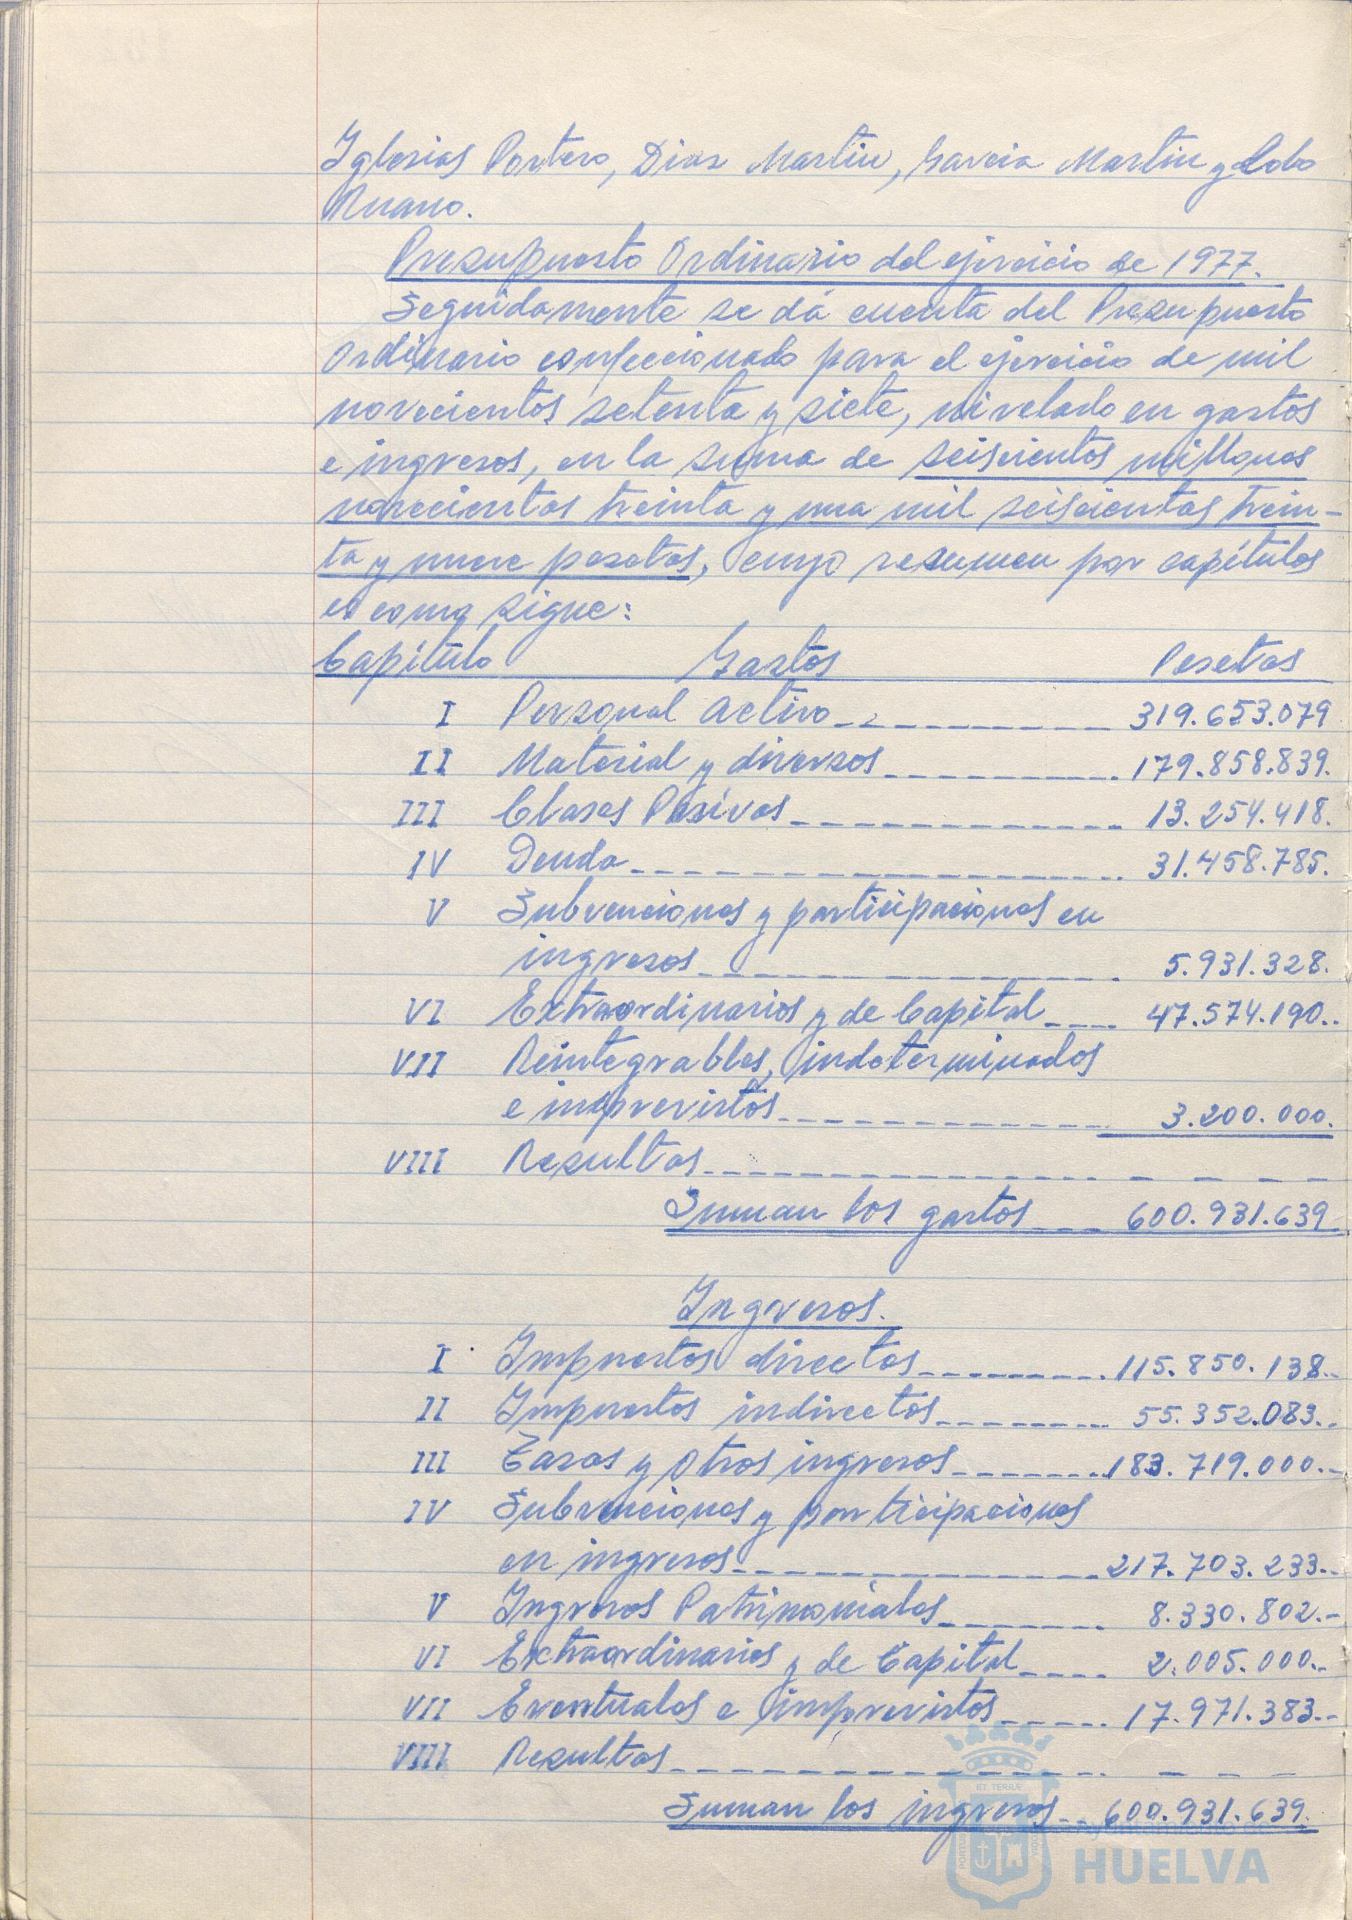 Iglesias Portero, Diaz Martin, Garcia Martin y Lobo
Ruano.
Presupuesto Ordinario del ejercicio de 1977.
Seguidamente se dá cuenta del Presupuesto
Ordinario confeccionado para el ejercicio de mil
novecientos setenta y siete, nivelado en gastos
e ingresos, en la suma de seiscientos millones
novecientas treinta y una mil seiscientas trein-
ta y nueve pesetas, cuyo resumen por capítulos
es como sigue:
Capítulo Gastos Pesetas
I Personal activo 319.653.079
II Material y diversos 179.858.839.
III Clases Pasivas 13.254.418.
IV Deuda 31.458.785.
V Subvenciones y participaciones en
ingresos 5.931.328.
VI Extraordinarios y de Capital 47.574.190.
VII Reintegrables, indeterminados
e imprevistos 3.200.000.
VIII Resultas - - - -
Suman los gastos 600.931.639
Ingresos.
I Impuestos directos 115.850.138.-
II Impuestos indirectos 55.352.083.-
III Tasas y otros ingresos 183.719.000.-
IV Subvenciones y participaciones
en ingresos 217.703.233.-
V Ingresos Patrimoniales 8.330.802.-
VI Extraordinarios y de Capital 2.005.000.-
VII Eventuales e imprevistos 17.971.383.-
VIII Resultas - - - -
Suman los ingresos 600.931.639.
ET TERRÆ
Ayuntamiento de
HUELVA